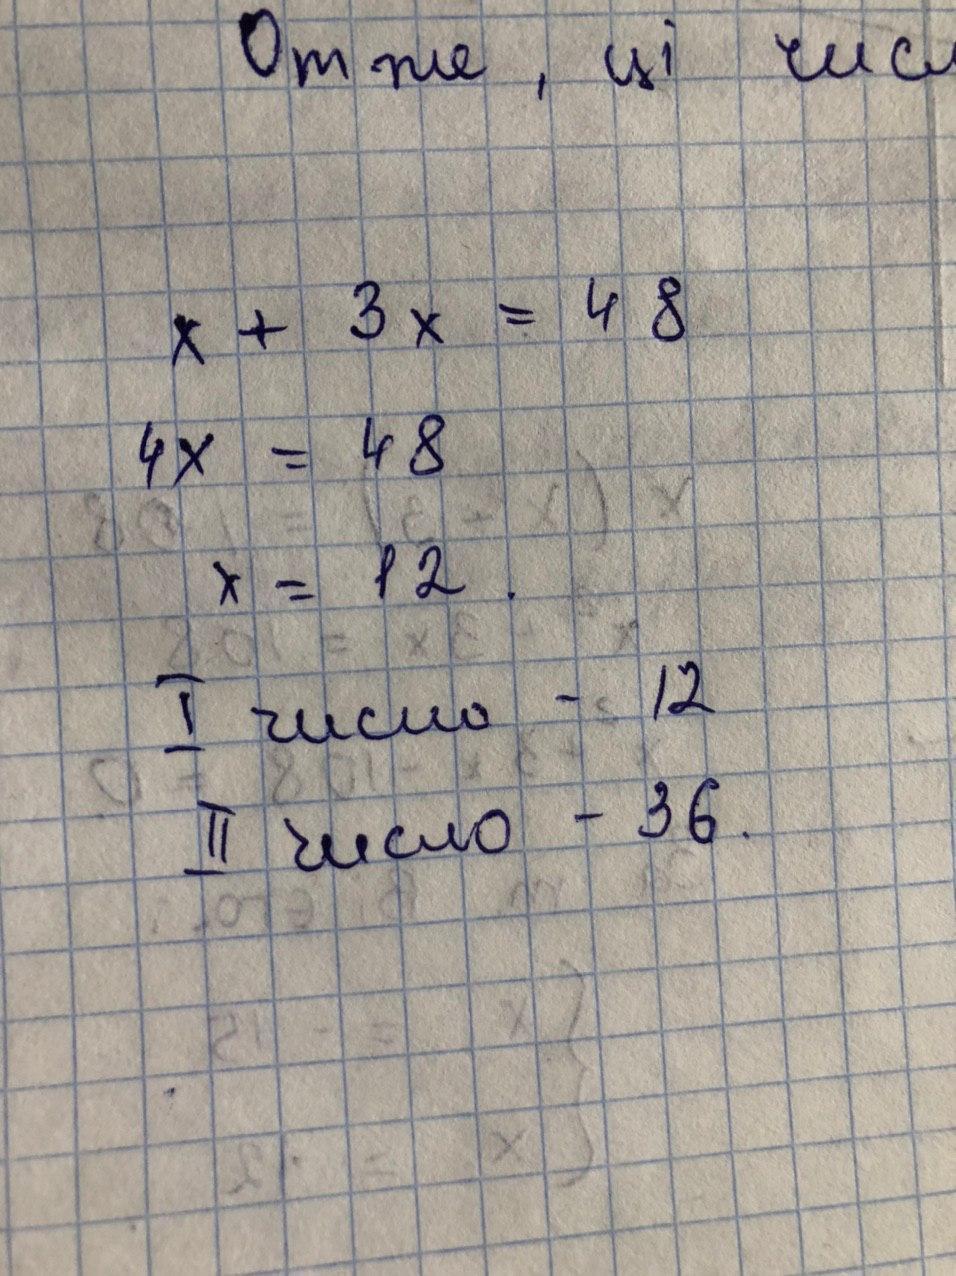 Отже, ці числ
x + 3x = 48
4x = 48
x = 12.
I число - 12
II число - 36.